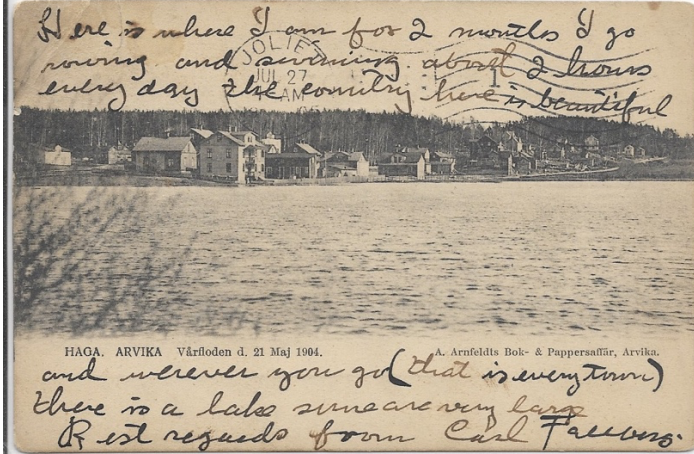 Here is where I am for 2 months I go
rowing and swimming about 2 hours
every day the country here is beautiful
JOLIET
JUL 27
AM
1
HAGA. ARVIKA Vårfloden d. 21 Maj 1904.
A. Arnfeldts Bok- & Pappersaffär, Arvika.
and wherever you go (that is every town)
there is a lake some are very large
Best regards from Carl